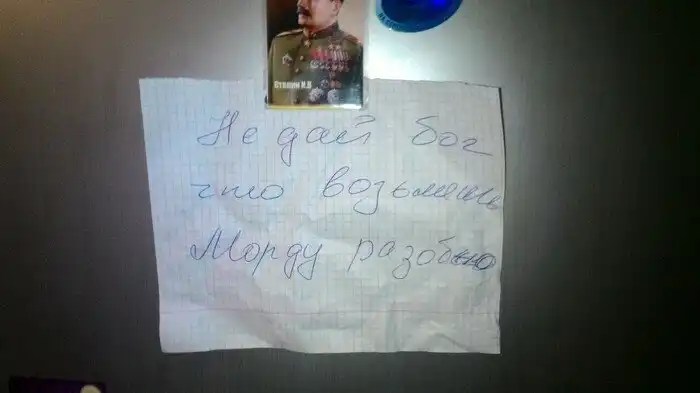 Сталин И.В
Не дай бог
что возьмешь
Морду разобью